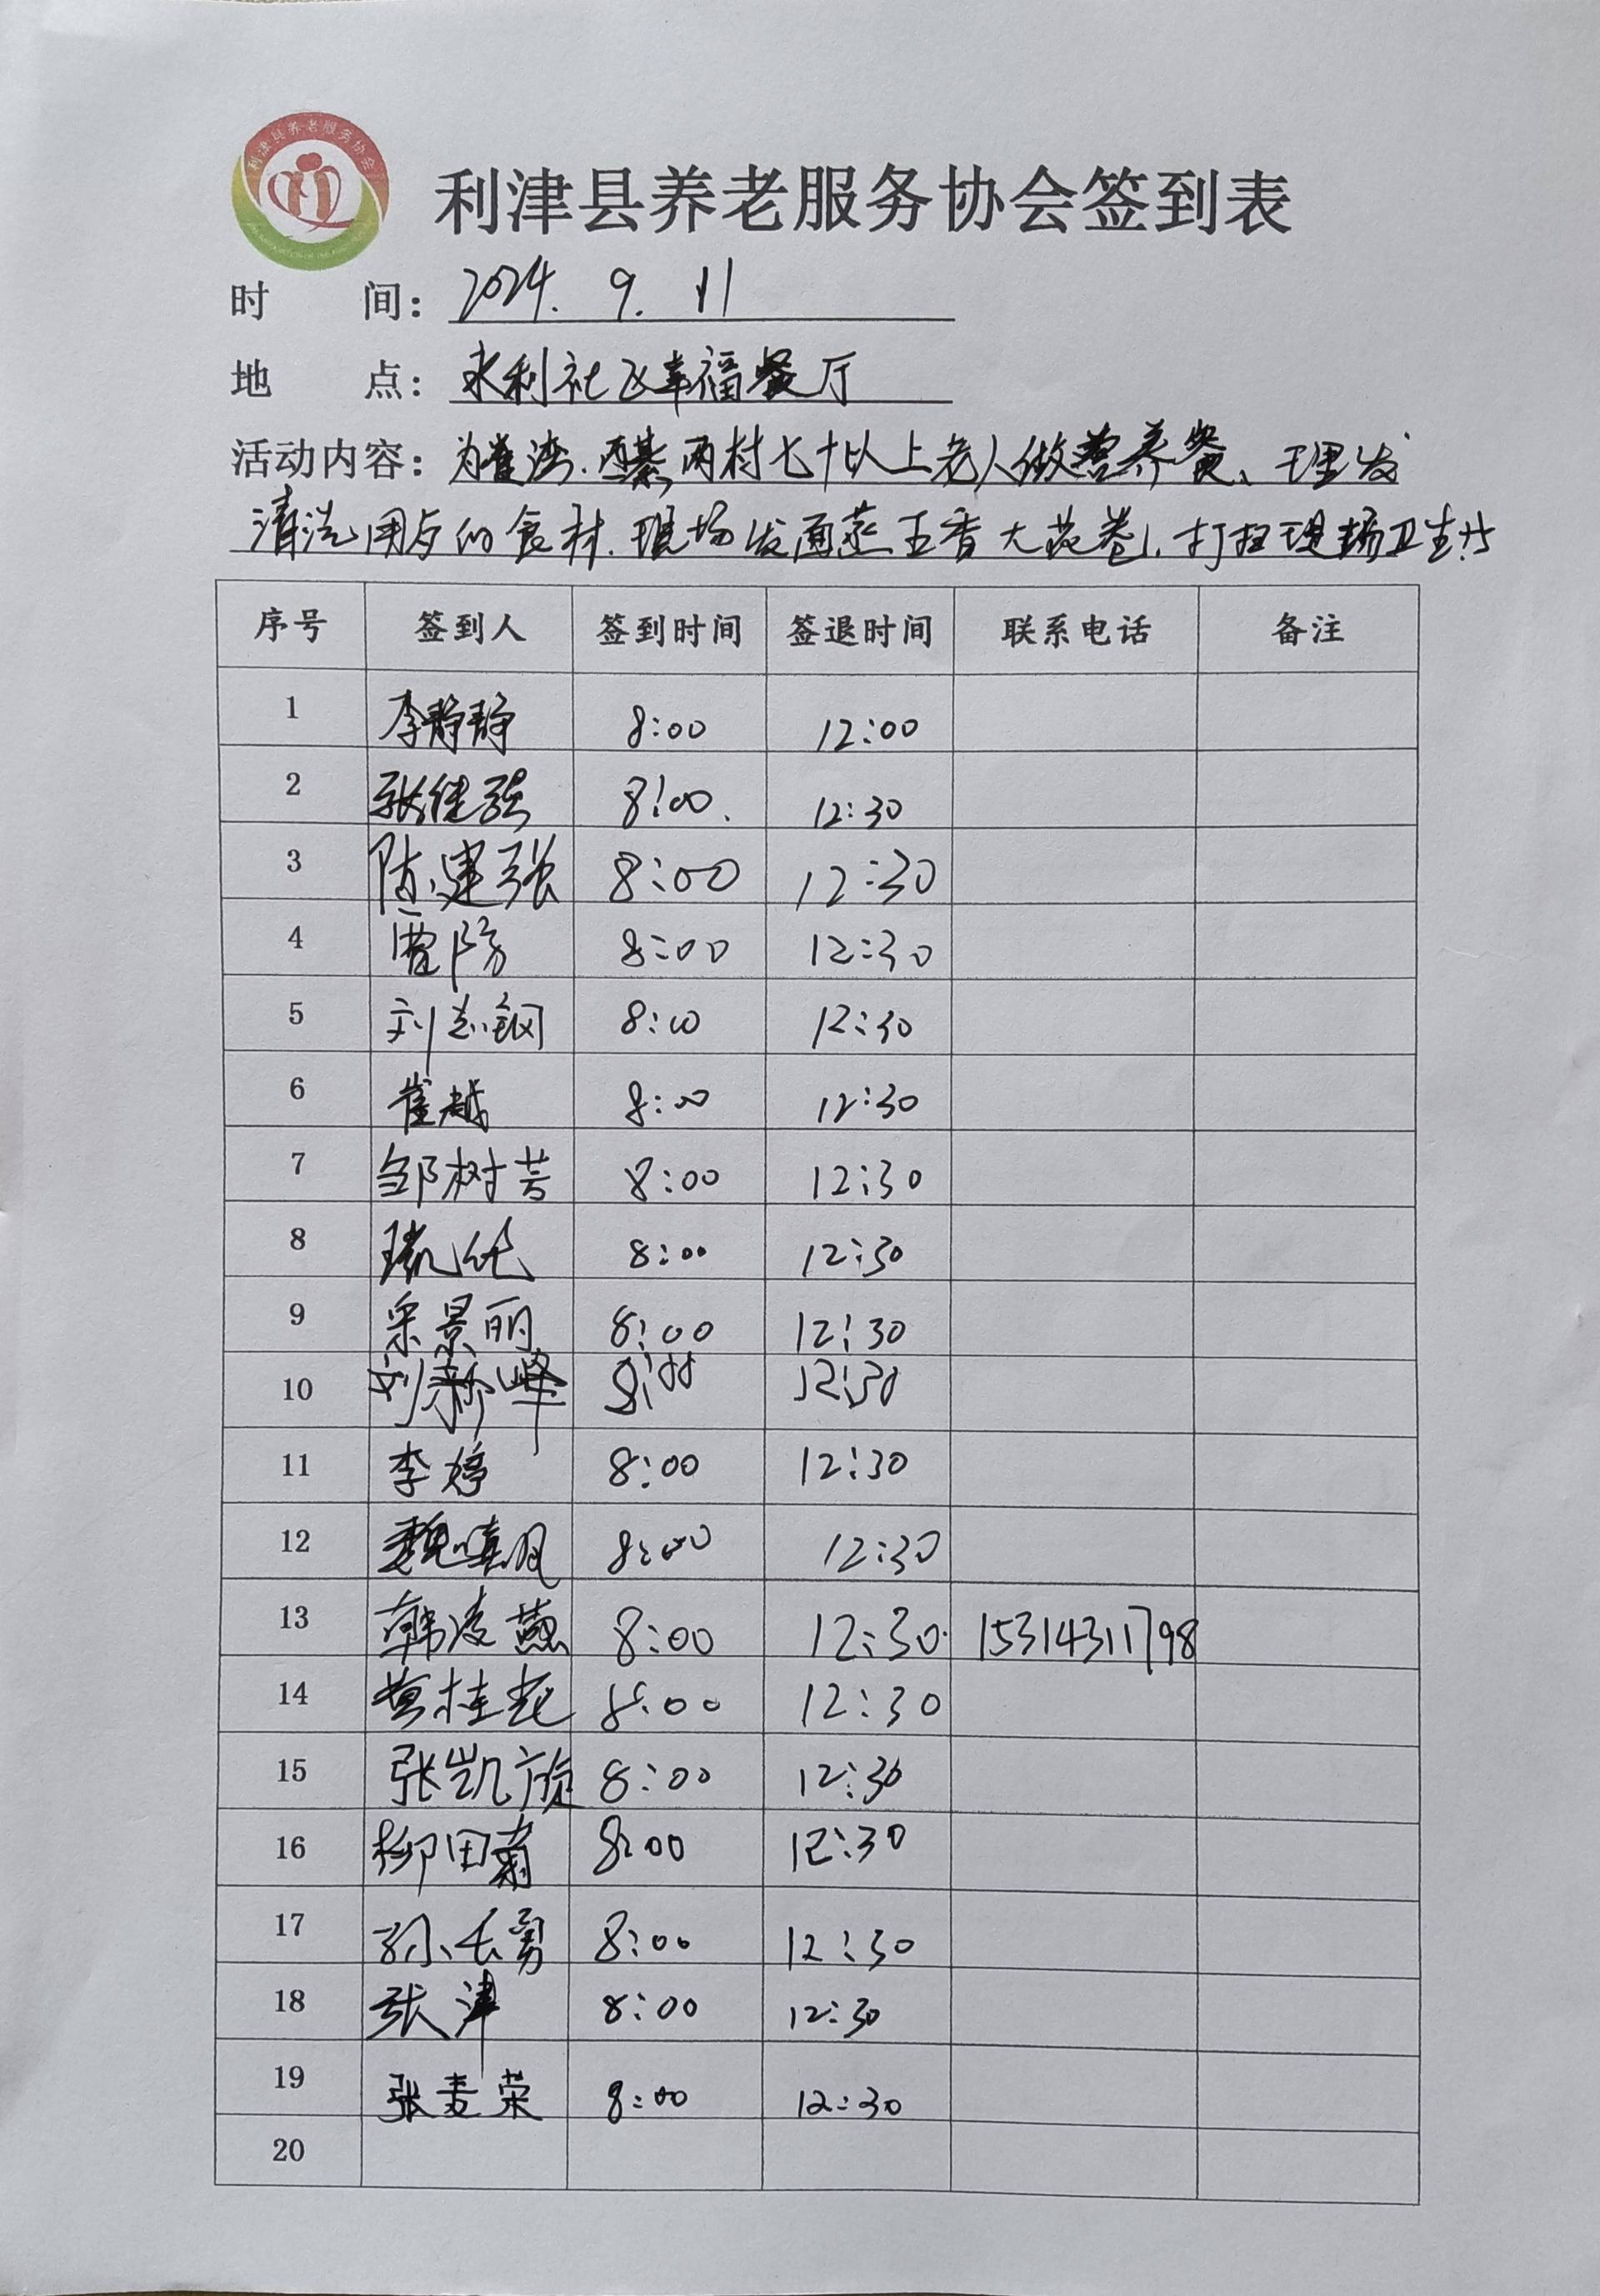 利津县养老服务协会
利津县养老服务协会签到表
时 间: 2024. 9. 11
地 点: 永利社区幸福餐厅
活动内容: 为崔湾、西綦两村七十以上老人做营养餐、理发
清洗用 的食材、现场发面蒸五香大花卷、打扫现场卫生
序号 签到人 签到时间 签退时间 联系电话 备注
1 李静静 8:00 12:00
2 张继强 8:00. 12:30
3 陈建张 8:00 12:30
4 贾防 8:00 12:30
5 刘志钢 8:00 12:30
6 崔越 8:00 12:30
7 邹树芸 8:00 12:30
8 8:00 12:30
9 景丽 8:00 12:30
10 刘新峰 8:00 12:30
11 李婷 8:00 12:30
12 魏 8:00 12:30
13 韩凌燕 8:00 12:30 15314311798
14 黄桂花 8:00 12:30
15 张凯旋 8:00 12:30
16 柳田菊 8:00 12:30
17 孙长勇 8:00 12:30
18 张津 8:00 12:30
19 张麦荣 8:00 12:30
20